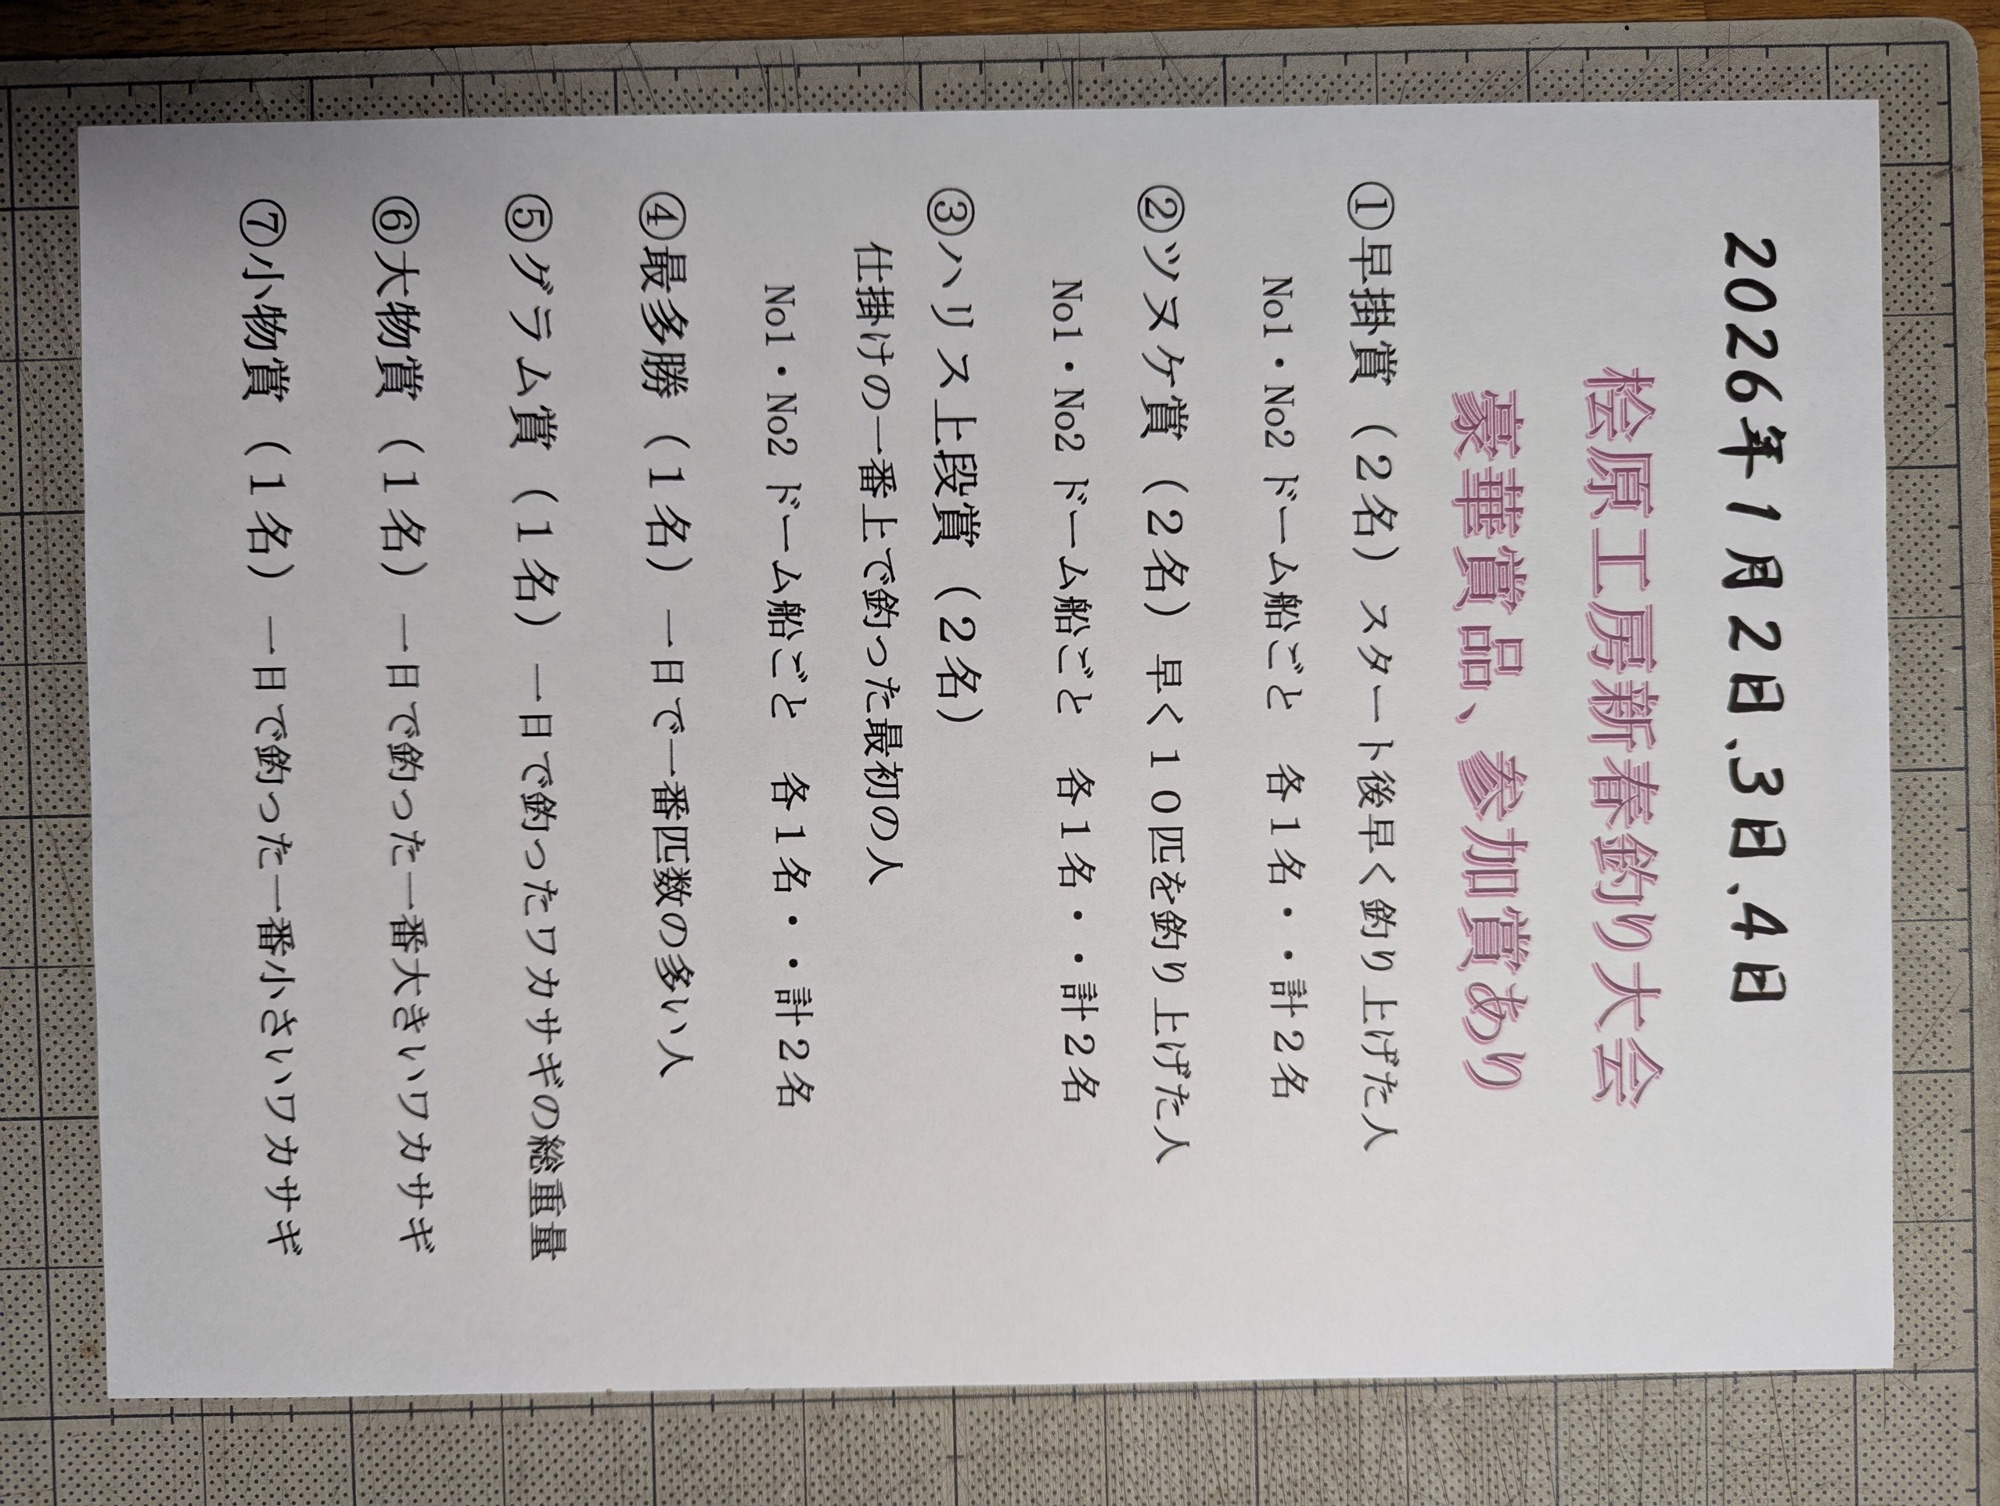 2026年1月2日、3日、4日
桧原工房新春釣り大会
豪華賞品、参加賞あり
①早掛賞（２名）スタート後早く釣り上げた人
No1・No2 ドーム船ごと　各１名・・計２名
②ツヌケ賞（２名）早く１０匹を釣り上げた人
No1・No2 ドーム船ごと　各１名・・計２名
③ハリス上段賞（２名）
仕掛けの一番上で釣った最初の人
No1・No2 ドーム船ごと　各１名・・計２名
④最多勝（１名）一日で一番匹数の多い人
⑤グラム賞（１名）一日で釣ったワカサギの総重量
⑥大物賞（１名）一日で釣った一番大きいワカサギ
⑦小物賞（１名）一日で釣った一番小さいワカサギ